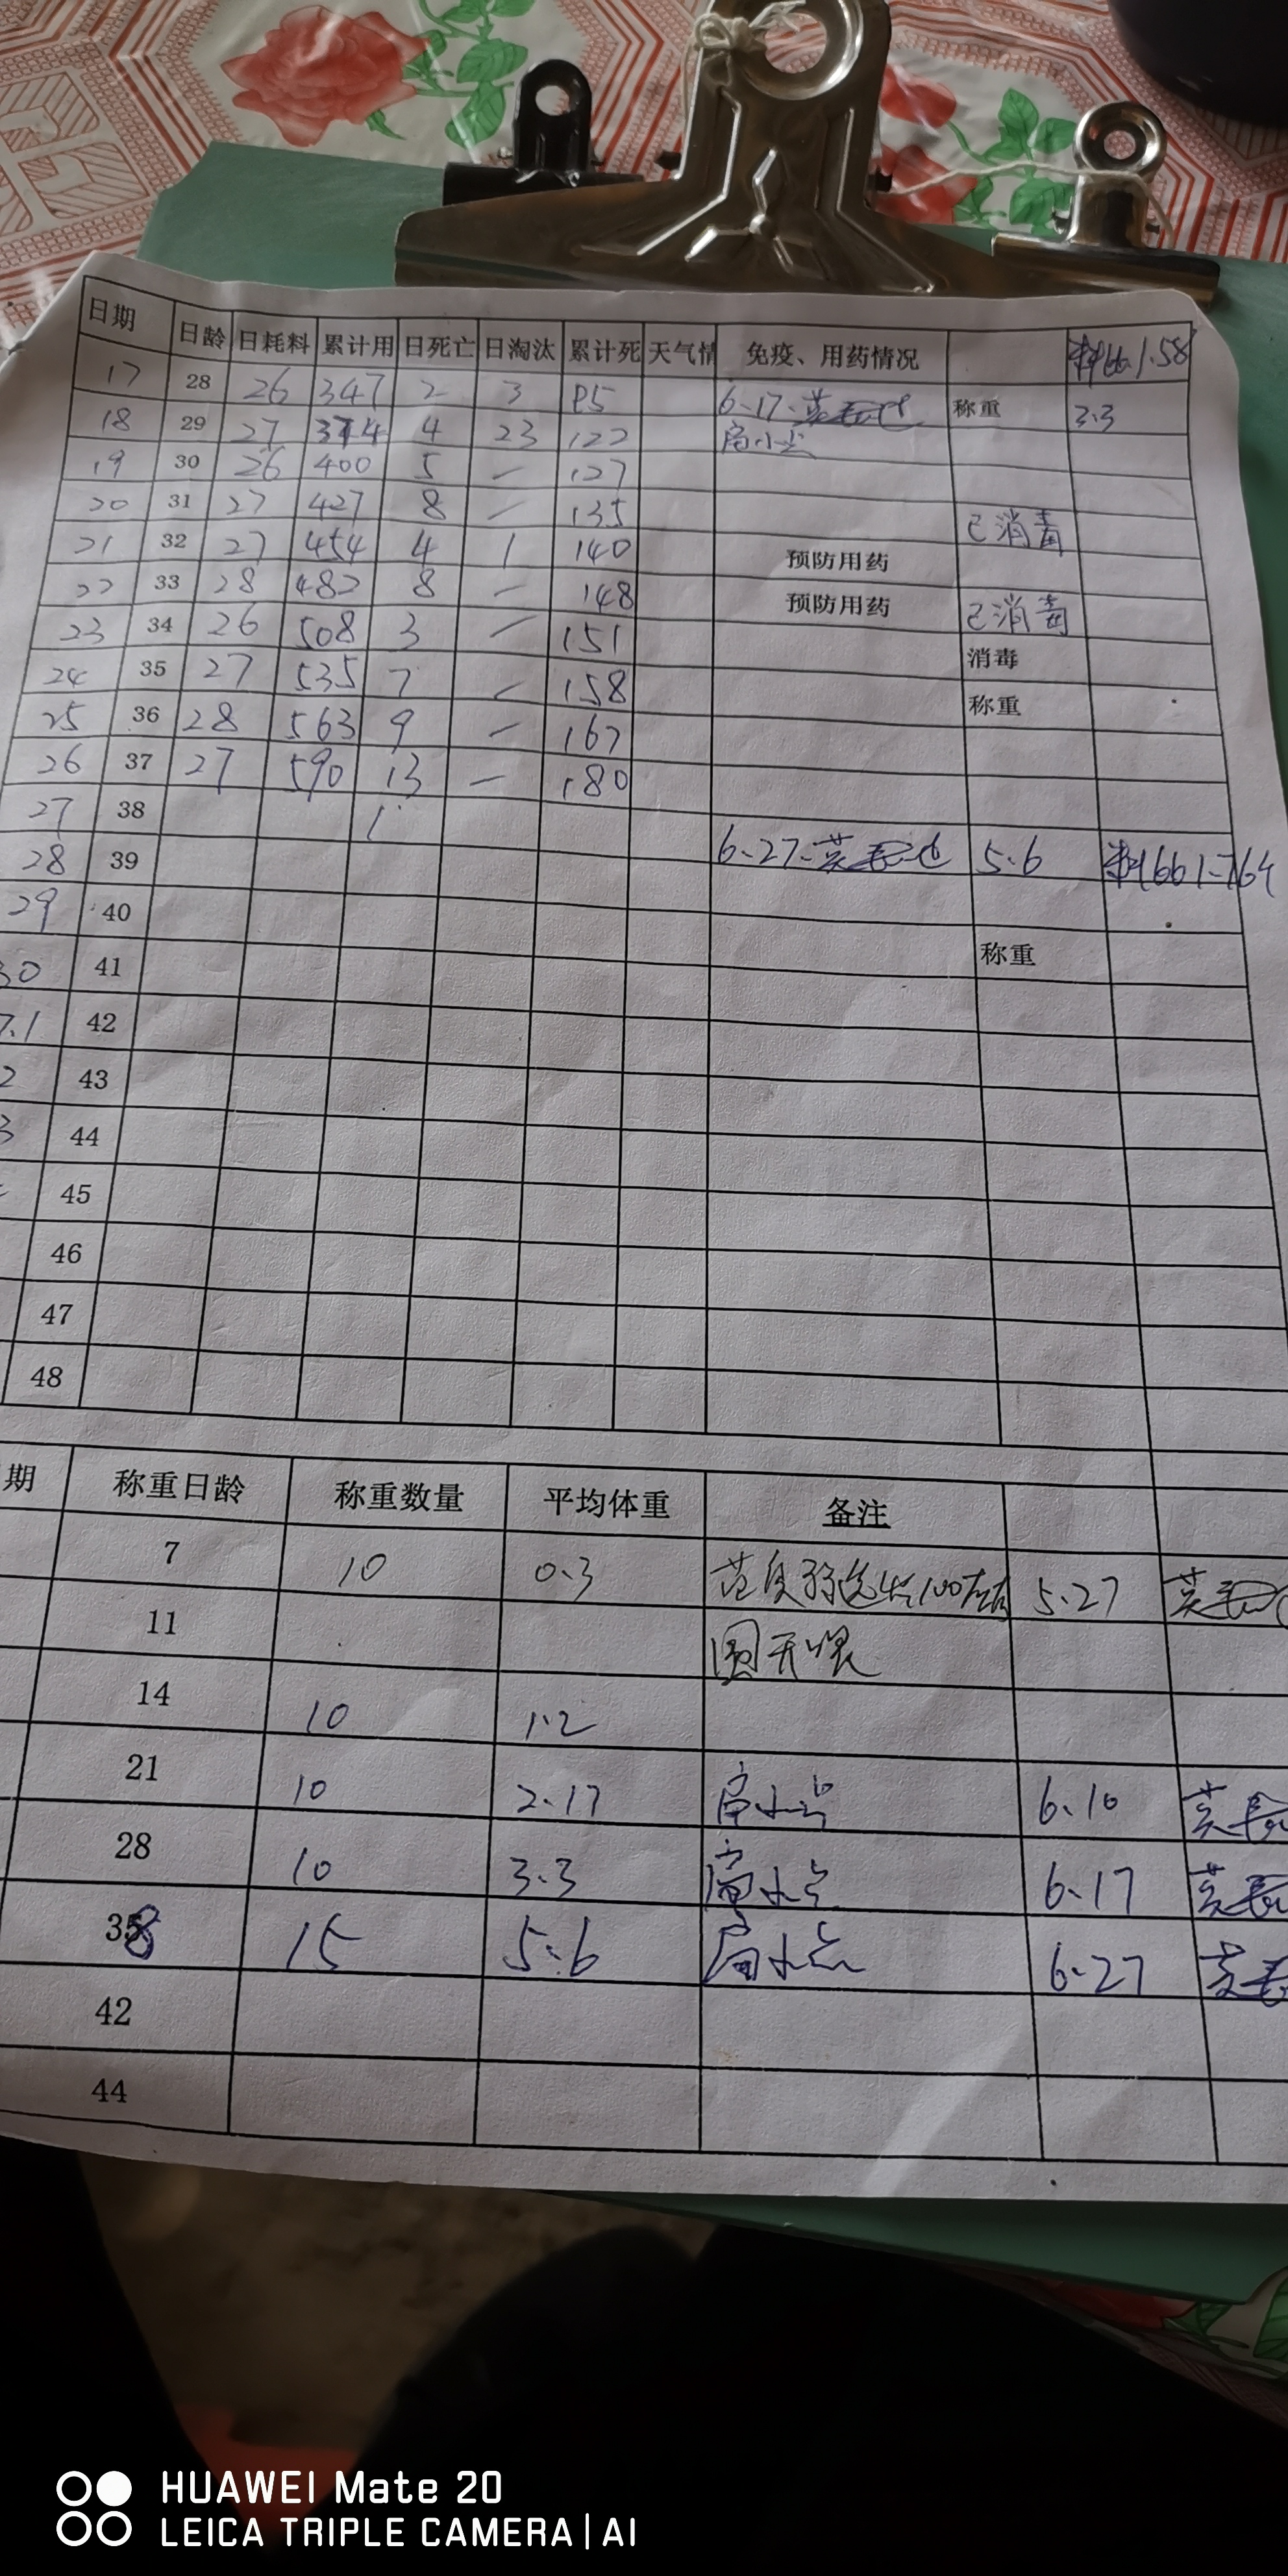 日期 日龄 日耗料 累计用 日死亡 日淘汰 累计死 天气情 免疫、用药情况 料肉1.58
17 28 26 347 2 3 95 6.17. 称重 3.3
18 29 27 374 4 23 122
19 30 26 400 5 — 127
20 31 27 427 8 — 135 已消毒
21 32 27 454 4 1 140 预防用药
22 33 28 482 8 — 148 预防用药 已消毒
23 34 26 508 3 — 151 消毒
24 35 27 535 7 — 158 称重
25 36 28 563 9 — 167
26 37 27 590 13 — 180
27 38 1
28 39 6.27. 5.6
29 40
30 41 称重
7.1 42
2 43
3 44
45
46
47
48
期 称重日龄 称重数量 平均体重 备注
7 10 0.3 5.27
11
14 10 1.2
21 10 2.17 6.10
28 10 3.3 6.17
38 15 5.6 6.27
42
44
HUAWEI Mate 20
LEICA TRIPLE CAMERA | AI